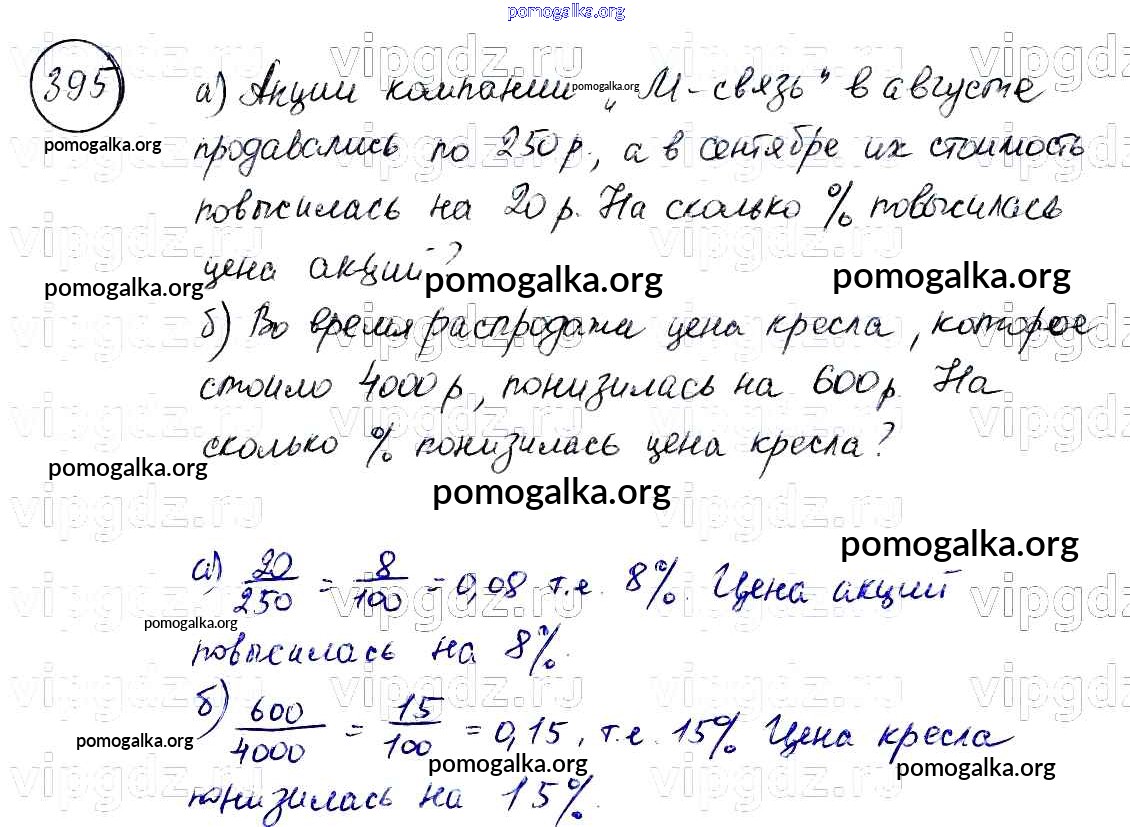 pomogalka.org
395
а) Акции компании „М-связь" в августе
pomogalka.org
pomogalka.org
продавались по 250 р., а в сентябре их стоимость
повысилась на 20 р. На сколько % повысилась
vipgdz.ru
цена акций?
pomogalka.org
pomogalka.org
pomogalka.org
б) Во время распродажи цена кресла, которое
стоило 4000 р, понизилась на 600 р. На
сколько % понизилась цена кресла?
pomogalka.org
pomogalka.org
vipgdz.ru
pomogalka.org
а) 20/250 = 8/100 = 0,08 т.е. 8%. Цена акций
pomogalka.org
повысилась на 8%.
vipgdz.ru
б) 600/4000 = 15/100 = 0,15, т.е. 15% Цена кресла
pomogalka.org
pomogalka.org
pomogalka.org
понизилась на 15%.